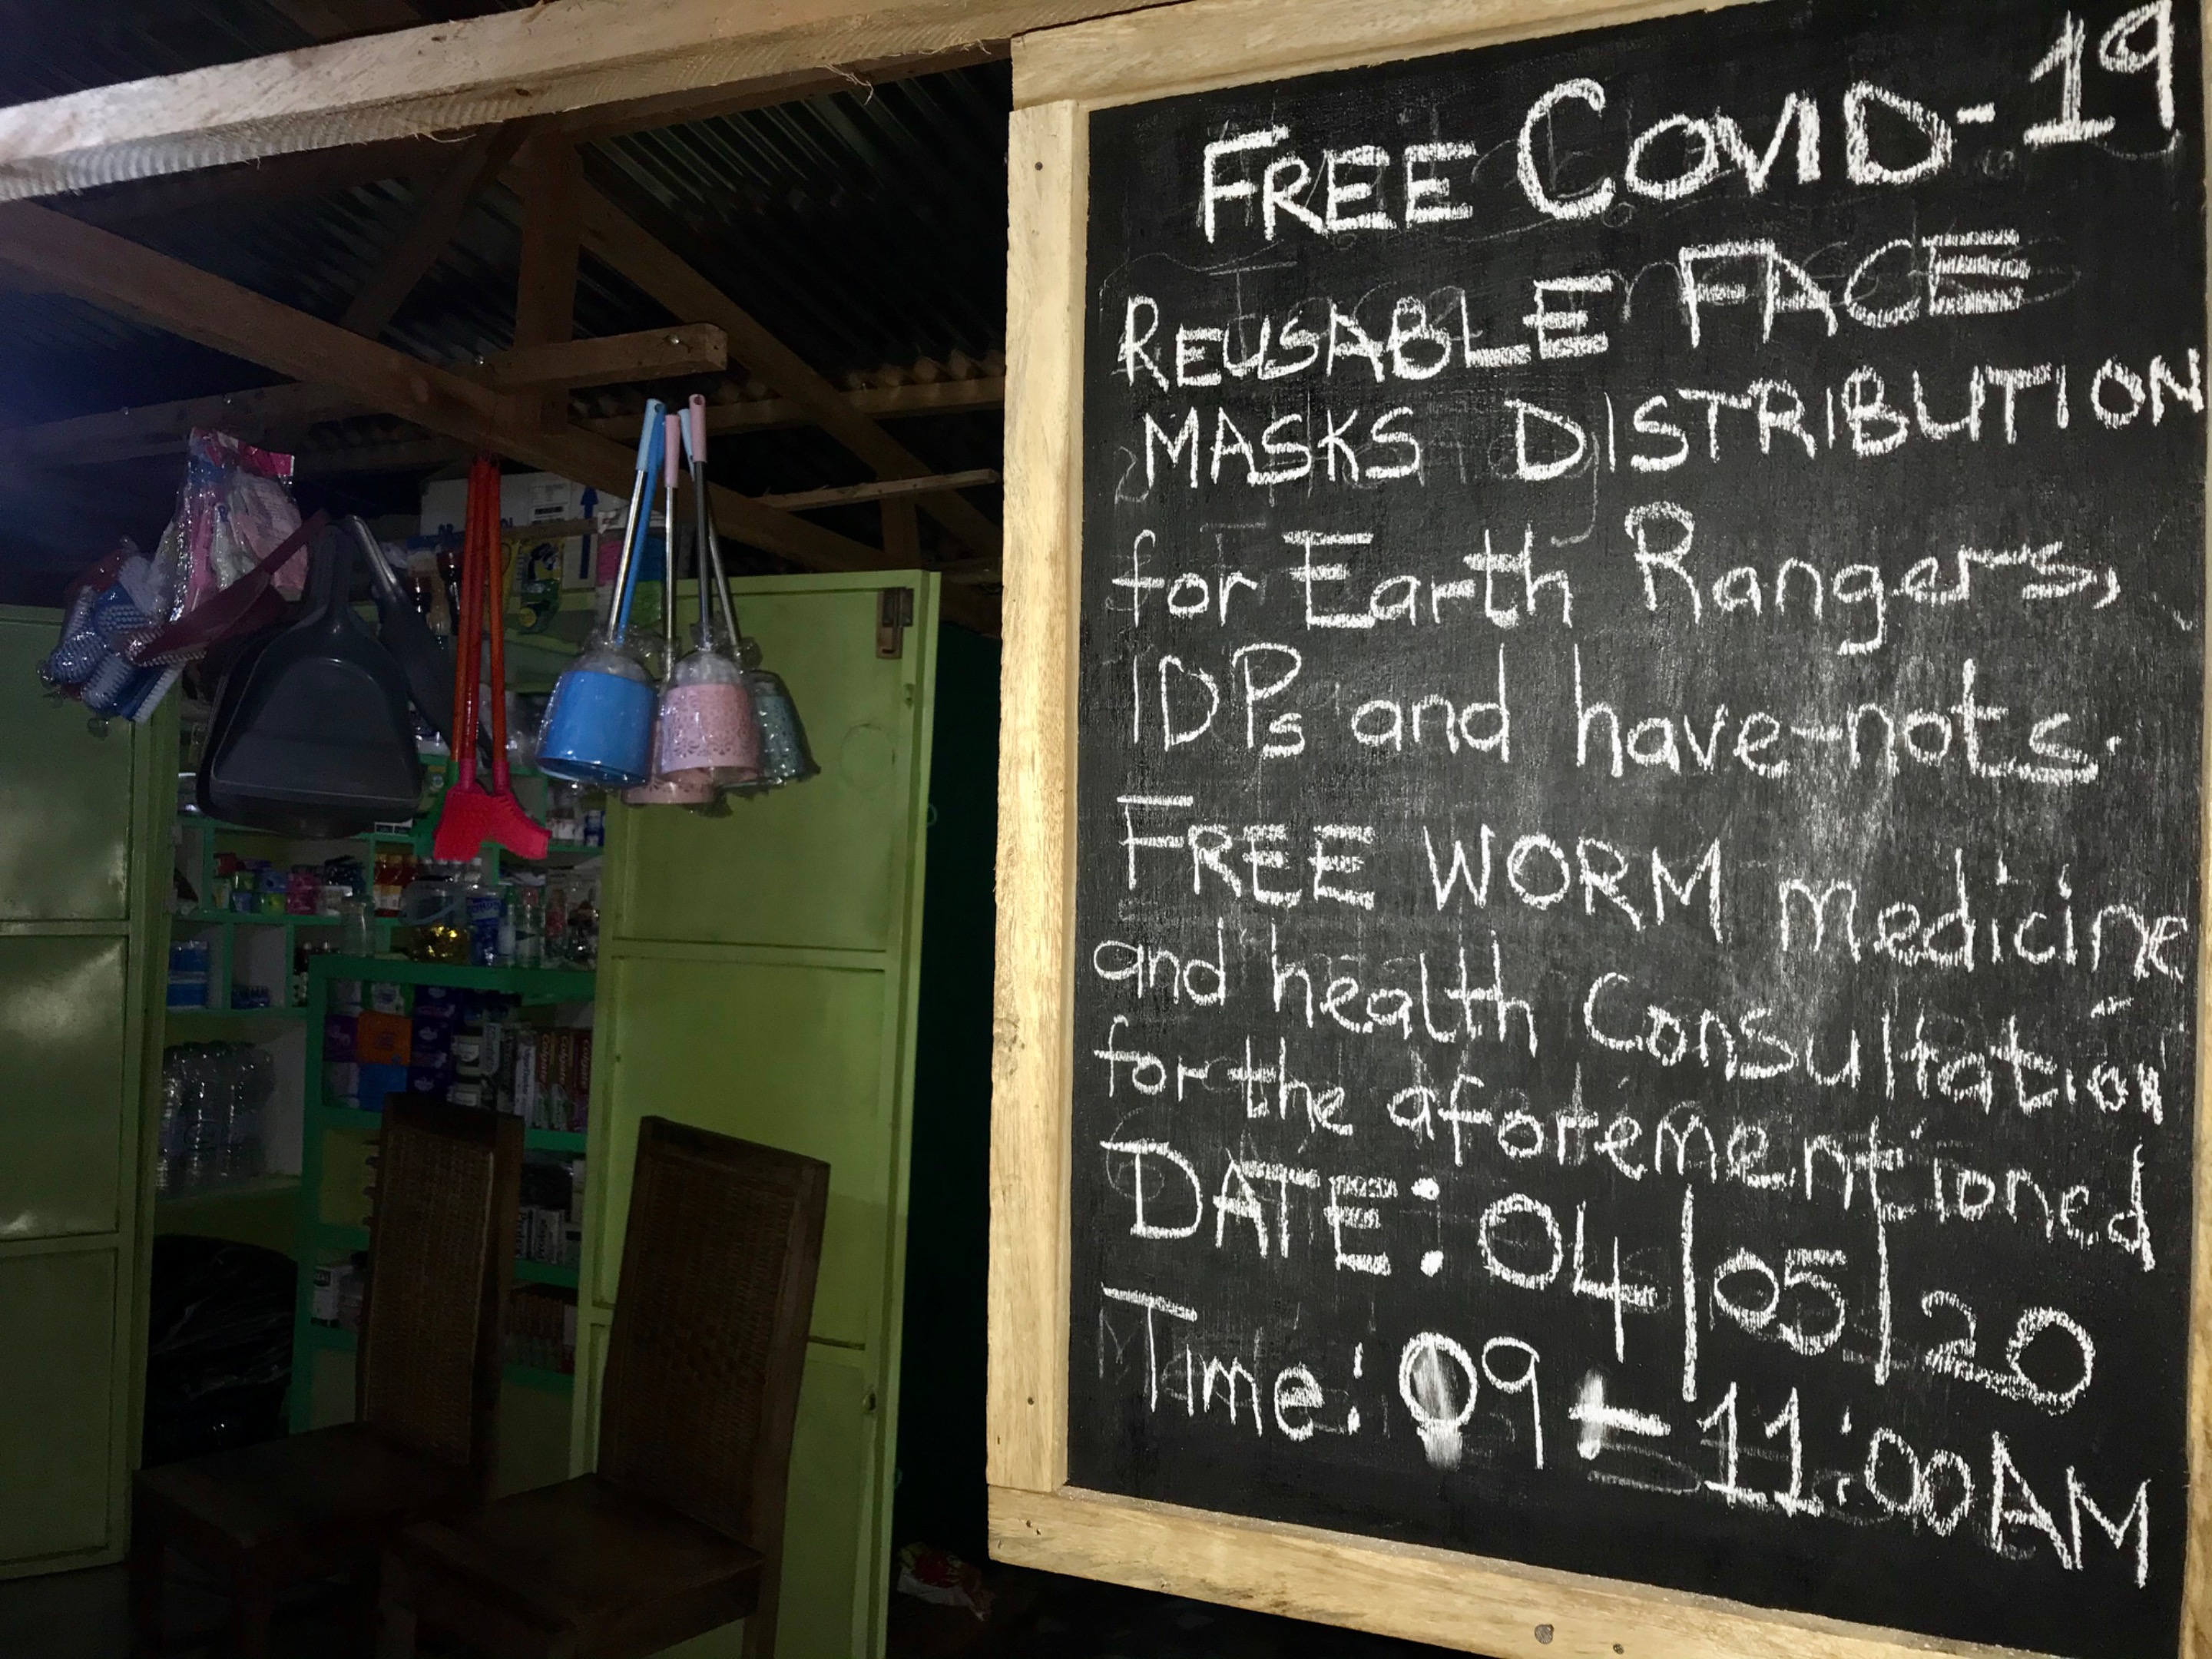 FREE COVID-19
REUSABLE FACE
MASKS DISTRIBUTION
for Earth Rangers,
IDPs and have-nots.
FREE WORM medicine
and health Consultation
for the aforementioned
DATE: 04/05/20
Time: 09 - 11:00AM
Colgate
Colgate
Colgate